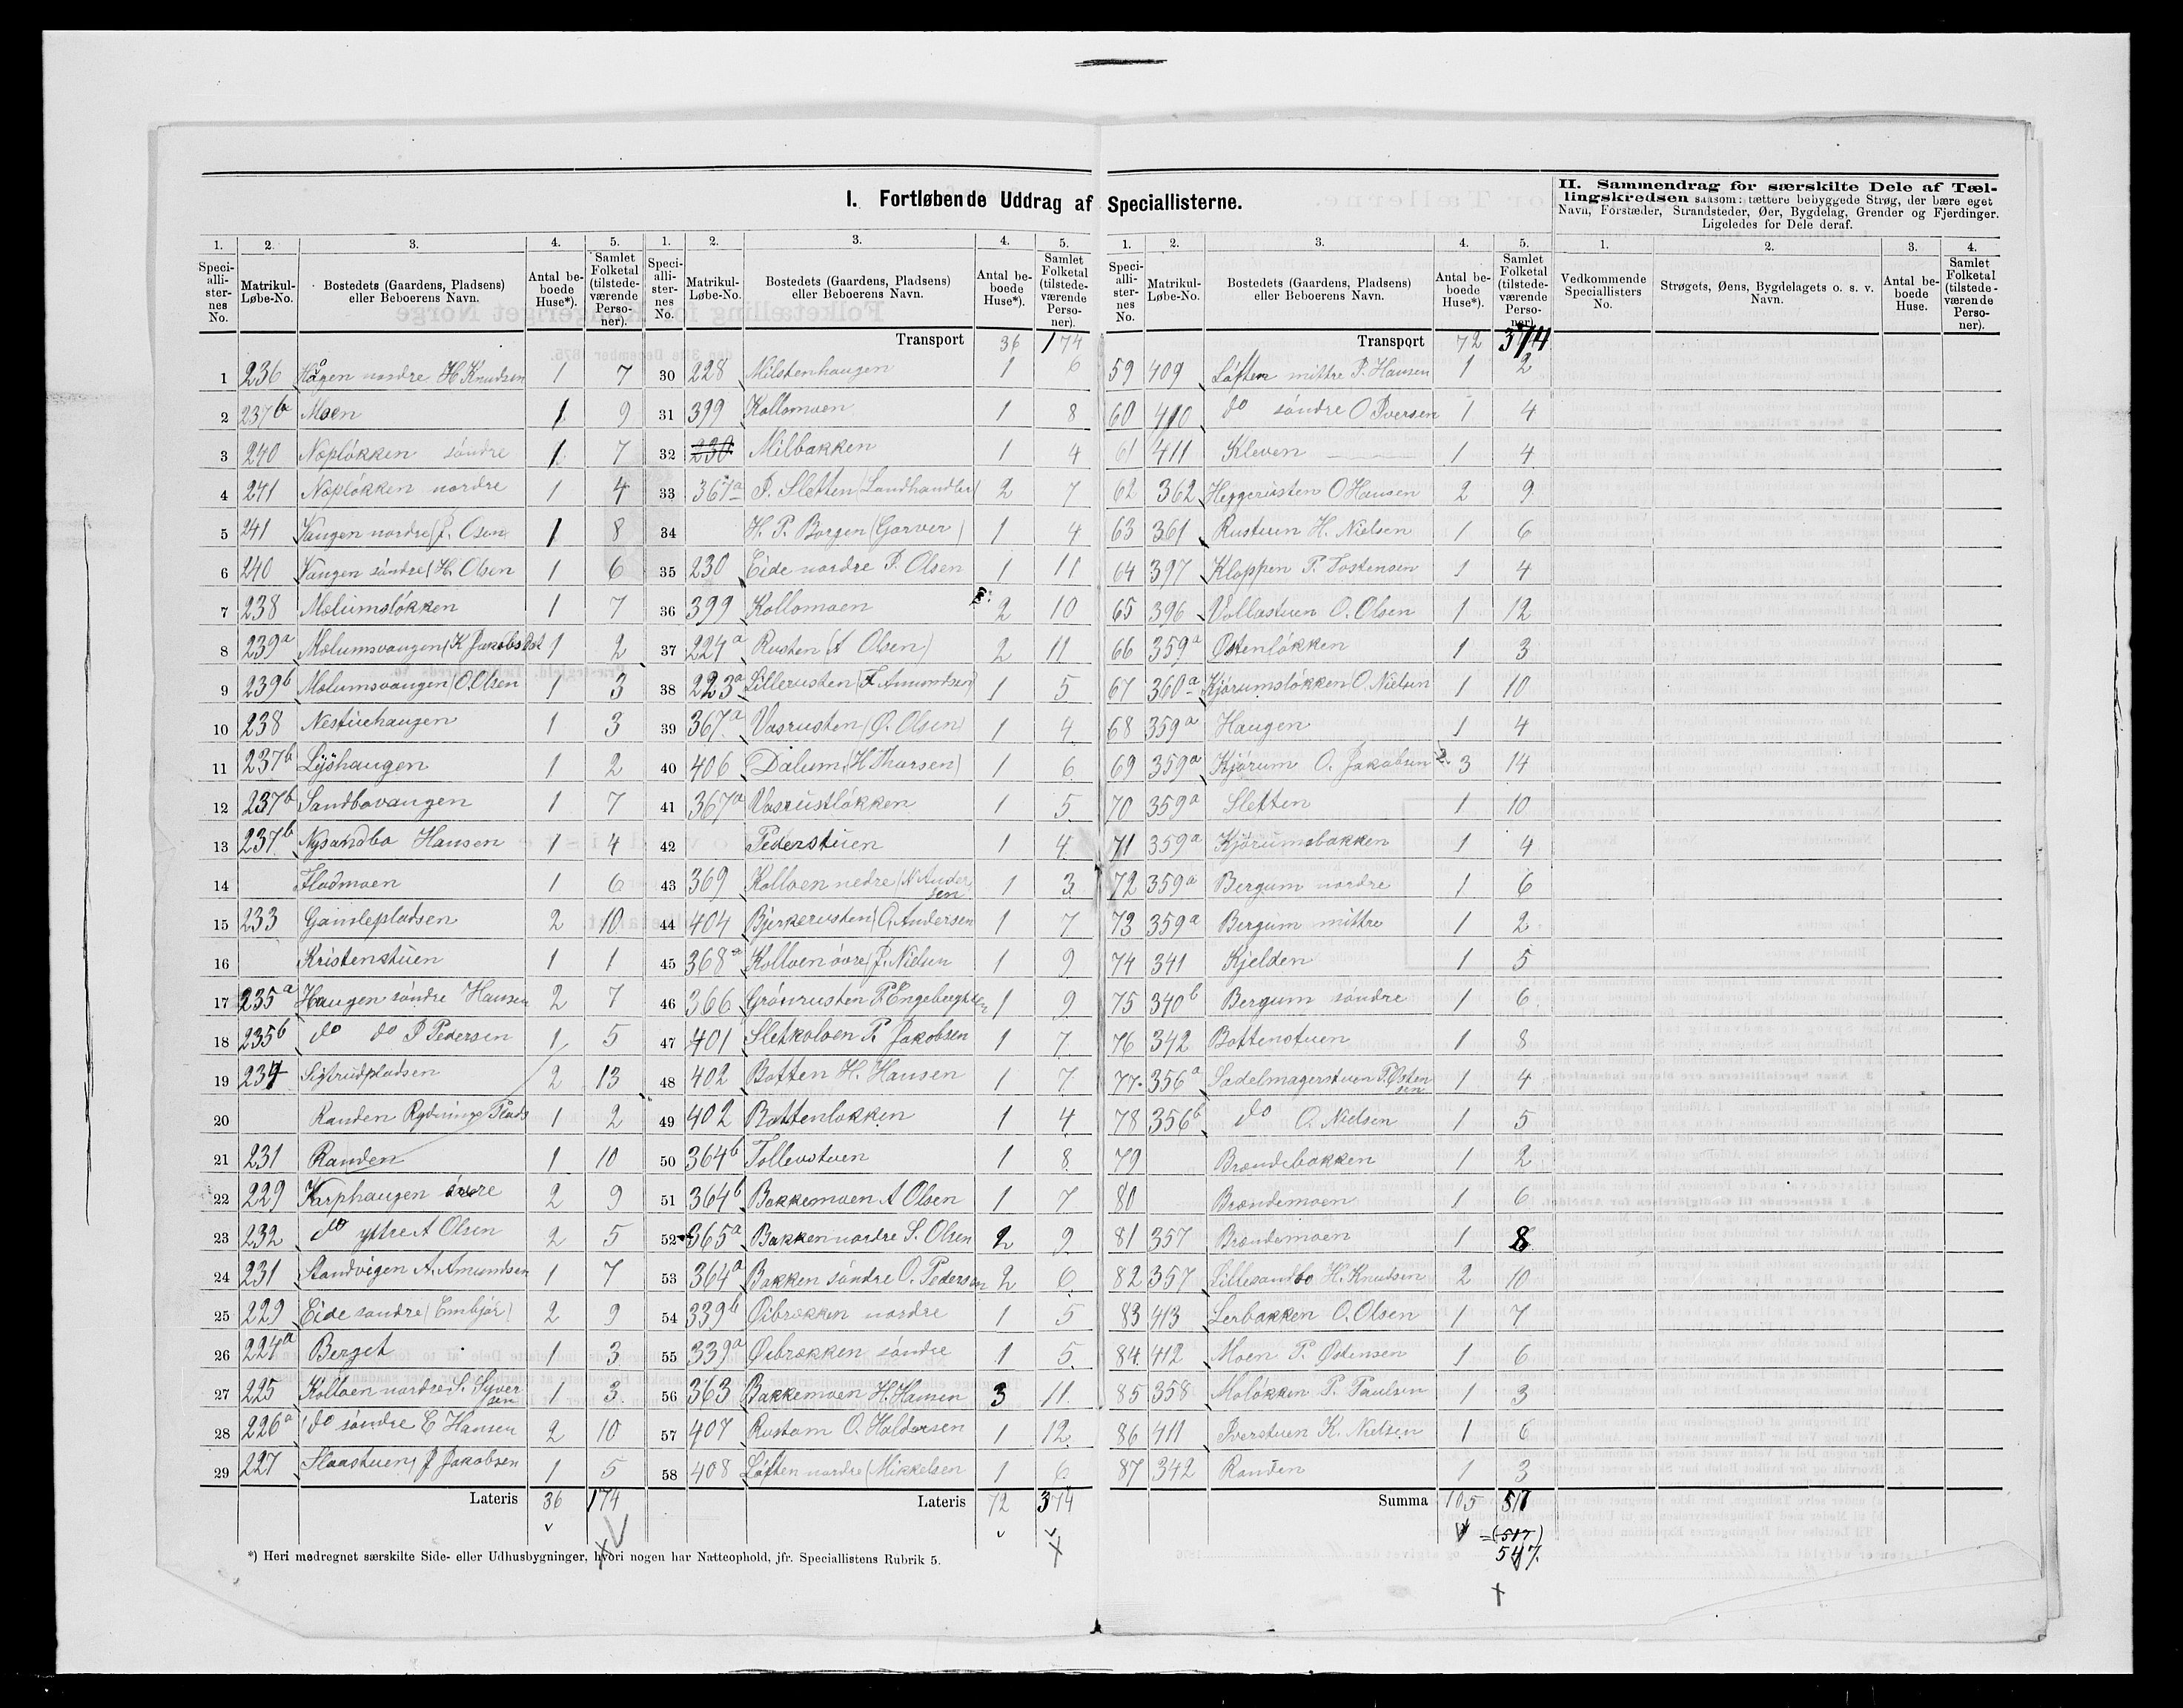 I. Fortløbende Uddrag af Speciallisterne.
II. Sammendrag for særskilte Dele af Tællingskredsen saasom: tættere bebyggede Strøg, der bære eget
Navn, Forstæder, Strandsteder, Øer, Bygdelag, Grender og Fjerdinger.
Ligeledes for Dele deraf.
1. 2. 3. 4. 5.
Speciallisternes No. Matrikul-Løbe-No. Bostedets (Gaardens, Pladsens) eller Beboerens Navn. Antal beboede Huse*). Samlet Folketal (tilstedeværende Personer).
1 236 Hågen nordre H Knudsen 1 7
2 237b Moen 1 9
3 240 Nøpløkken søndre 1 7
4 241 Nøpløkken nordre 1 4
5 241 Vangen nordre (J. Osen 1 8
6 240 Vangen søndre (H. Olsen 1 6
7 238 Mælumsløkken 1 7
8 239a Mælumsvangen (K Jakobsdat 1 2
9 239b Mælumsvangen (O. Olsen 1 3
10 238 Nestuehaugen 1 3
11 237b Lyshaugen 1 2
12 237b Sandbovangen 1 7
13 237b Nysandbo Hansen 1 4
14 Fladmoen 1 6
15 233 Gamlepladsen 2 10
16 Kristenstuen 1 1
17 235a Haugen søndre Hansen 2 7
18 235b do do P Pedersen 1 5
19 234 Sigtrudpladsen 2 13
20 Randen Rydnings Plads 1 2
21 231 Randen 1 10
22 229 Karphaugen øvre 2 9
23 232 do ytre A Olsen 2 5
24 231 Standvigen A. Amundsen 1 7
25 229 Eide søndre (Embjør) 2 9
26 224a Berget 1 3
27 225 Kolloen nordre S. Syversen 1 3
28 226a do søndre E Hansen 2 10
29 227 Slaastuen J Jakobsen 1 5
Lateris 36 174
1. 2. 3. 4. 5.
Speciallisternes No. Matrikul-Løbe-No. Bostedets (Gaardens, Pladsens) eller Beboerens Navn. Antal beboede Huse*). Samlet Folketal (tilstedeværende Personer).
Transport 36 174
30 228 Milstenhaugen 1 6
31 399 Kollomoen 1 8
32 230 Milbakken 1 4
33 367a P. Sletten (Landhandler) 2 7
34 H. P. Borgen (Garver) 1 4
35 230 Eide nordre P. Olsen 1 11
36 399 Kollomoen 2 10
37 224a Rusten (A Olsen) 2 11
38 223a Lillerusten (F Amundsen) 1 5
39 367a Vasrusten (O. Olsen) 1 4
40 406 Dalum (H Thorsen) 1 6
41 367a Vasrustløkken 1 5
42 Pederstuen 1 4
43 369 Kolloen nedre (N Andersen 1 3
44 404 Bjerkerusten (O. Andersen 1 7
45 368a Kolloen øvre (J. Nielsen 1 9
46 366 Grønrusten P. Engebregtsen 1 9
47 401 Sletkoloen P. Jakobsen 1 7
48 402 Botten H. Hansen 1 7
49 402 Bottenløkken 1 4
50 364b Tollevstuen 1 8
51 364b Bakkemoen A Olsen 1 7
52 365a Bakken nordre S. Olsen 2 9
53 364a Bakken søndre O. Pedersen 2 6
54 339b Øibrækken nordre 1 5
55 339a Øibrækken søndre 1 5
56 363 Bakkemoen H. Hansen 3 11
57 407 Rustom O. Haldorsen 1 12
58 408 Løften nordre (Mikkelsen 1 6
Lateris 72 374
1. 2. 3. 4. 5.
Speciallisternes No. Matrikul-Løbe-No. Bostedets (Gaardens, Pladsens) eller Beboerens Navn. Antal beboede Huse*). Samlet Folketal (tilstedeværende Personer).
Transport 72 374
59 409 Løften mittre P. Hansen 1 2
60 410 do søndre O Iversen 1 4
61 411 Kleven 1 4
62 362 Heggerusten O Hansen 2 9
63 361 Rustuen H. Nielsen 1 6
64 397 Kloppen P. Tostensen 1 4
65 396 Vollastuen O. Olsen 1 12
66 359a Østenløkken 1 3
67 360a Kjørumsløkken O. Nielsen 1 10
68 359a Haugen 1 4
69 359a Kjørum O. Jakobsen 3 14
70 359a Sletten 1 10
71 359a Kjørumsbakken 1 4
72 359a Bergum nordre 1 6
73 359a Bergum mittre 1 2
74 341 Kjelden 1 5
75 340b Bergum søndre 1 6
76 342 Bottenstuen 1 8
77 356a Sadelmagerstuen P. Østensen 1 4
78 356b do O. Nielsen 1 5
79 Brændebakken 1 2
80 Brændemoen 1 6
81 357 Brændemoen 1 8
82 357 Lillesandbo H. Knudsen 2 10
83 413 Lerbakken O. Olsen 1 7
84 412 Moen P. Østensen 1 6
85 358 Moløkken P. Paulsen 1 3
86 411 Iverstuen K. Nielsen 1 6
87 342 Randen 1 3
Summa 105 517
(517)
547.
1. 2. 3. 4.
Vedkommende Speciallisters No. Strøgets, Øens, Bygdelagets o. s. v. Navn. Antal beboede Huse. Samlet Folketal (tilstedeværende Personer).
*) Heri medregnet særskilte Side- eller Udhusbygninger, hvori nogen har Natteophold, jfr. Speciallistens Rubrik 5.